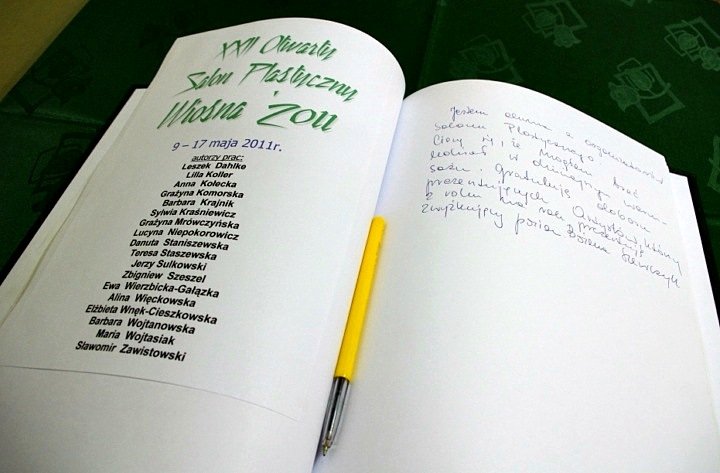 XXII Otwarty
Salon Plastyczny
Wiosna Żou
9 – 17 maja 2011r.
autorzy prac:
Leszek Dahlke
Lilla Koller
Anna Kołecka
Grażyna Komorska
Barbara Krajnik
Sylwia Kraśniewicz
Grażyna Mrówczyńska
Lucyna Niepokorowicz
Danuta Staniszewska
Teresa Staszewska
Jerzy Sulkowski
Zbigniew Szeszel
Ewa Wierzbicka-Gałązka
Alina Więckowska
Elżbieta Wnęk-Cieszkowska
Barbara Wojtanowska
Maria Wojtasiak
Sławomir Zawistowski
Jestem dumna z organizatorów
Salonu Plastycznego.
Cieszę się, że mogłam brać
udział w dzisiejszym
Gratuluję doboru
prezentujących Artystów, którzy
z roku na rok prezentują
zwyżkujący poziom Bożena